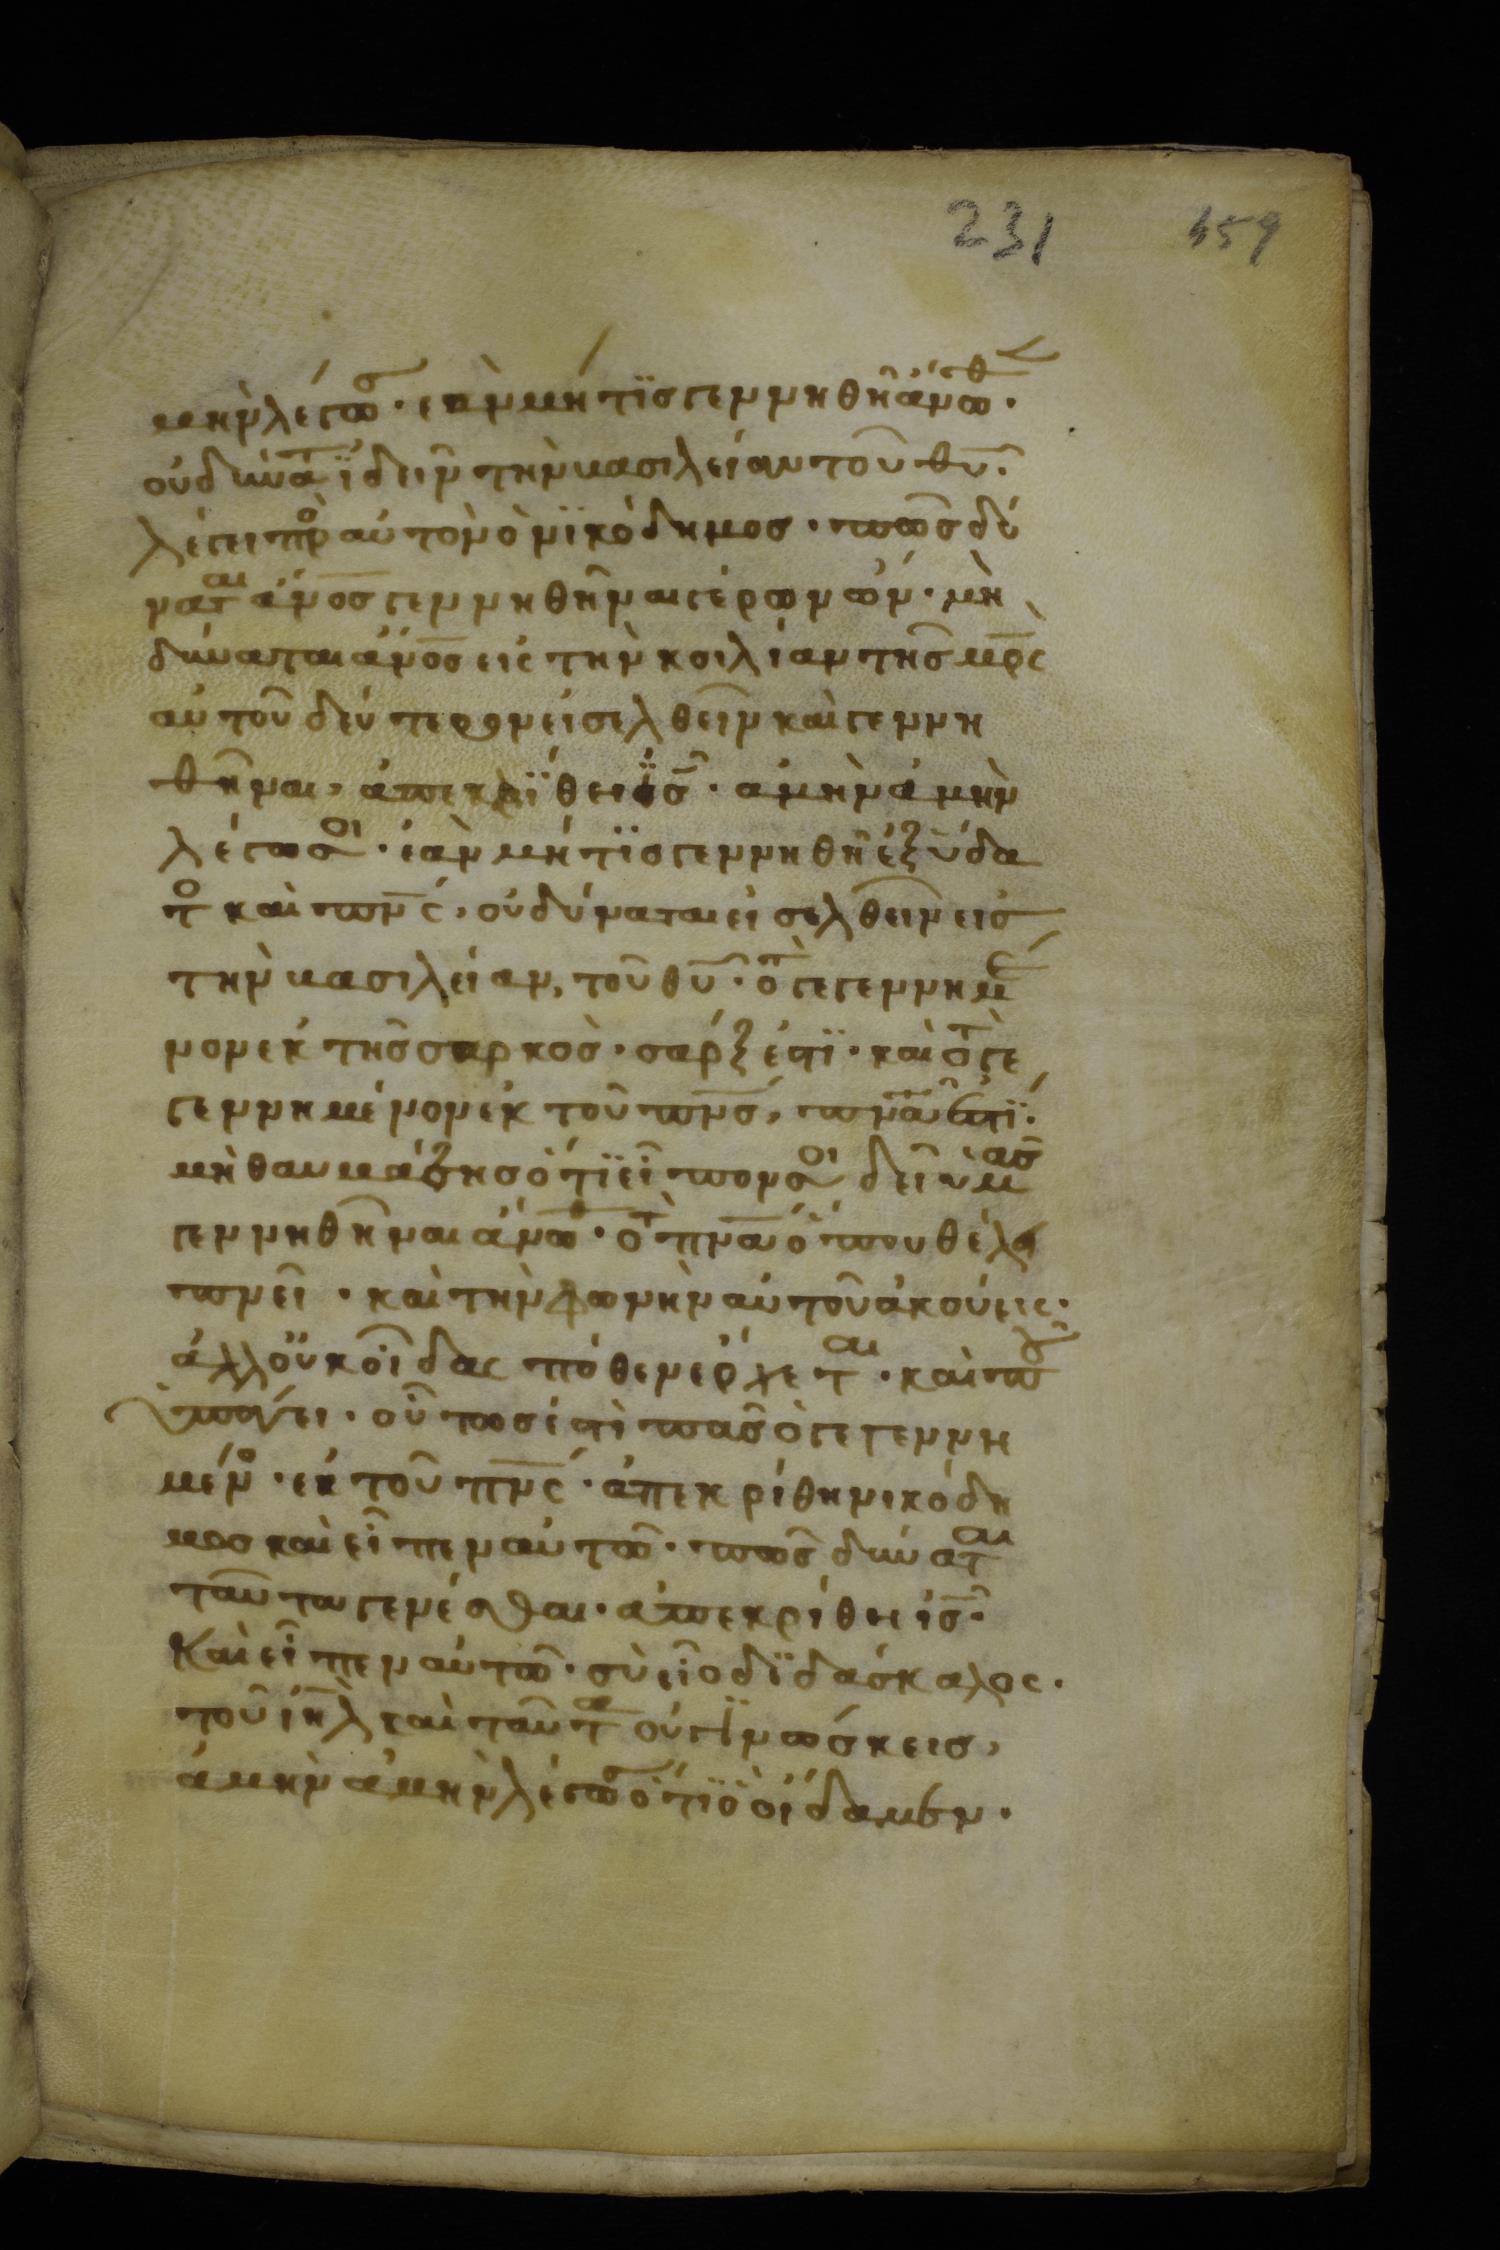 231 459
μὴν λέγω σ · ἐὰν μή τϊς γεννηθῆ ἄνωθ ·
οὐ δύνατ ϊδεῖν τὴν βασιλείαν τοῦ θυ ·
λέγει πρὸ αὐτὸν ὁ νϊκόδημος · πῶς δύ
ναται ἄνος γεννηθῆναι γέρων ὤν · μὴ
δύναται ἄνος εἰς τὴν κοιλίαν τῆς μρς
αὐτοῦ δεύτερον εἰσελθεῖν καὶ γεννη
θῆναι, ἀπεκρΐθει ὁ ϊς · ἀμὴν ἀμὴν
λέγω σοι · ἐὰν μή τϊς γεννηθῆ ἐξ ὕδα
το καὶ πνς, οὐ δύναται εἰσελθεῖν εἰς
τὴν βασιλείαν, τοῦ θυ · ὃ τ γεγεννημέ
νον ἐκ τῆς σαρκὸς · σάρξ ἐστϊ · καὶ ὃτ γε
γεννημένον ἐκ τοῦ πνς, πνα ἐστϊ ·
μὴ θαυμάζης ὅτϊ εἶπον σοι δεῖ ὑμας
γεννηθῆναι ἄνωθ · ὃτ πνα ὅπου θέλει
πνεῖ · καὶ τὴν φωνὴν αὐτοῦ ἀκούεις ·
ἀλλ οὐκ οἶδας πόθεν ἔρχεται · καὶ ποῦ
ὑπάγει · οὕτως ἐστὶ πᾶς ὁ γεγεννη
μένο · ἐκ τοῦ πνς · ἀπεκρίθη νικόδη
μος καὶ εἶπεν αὐτῶ · πῶς δύναται
ταῦτα γενέσθαι · ἀπεκρίθη ις ·
Καὶ εἶπεν αὐτῶ · σὺ εἶ ὁ δϊδάσκαλος ·
τοῦ ιηλ καὶ ταῦτα οὐ γϊνώσκεις,
ἀμὴν ἀμὴν λέγω σ ὅτϊ ὃ οἴδαμεν ·